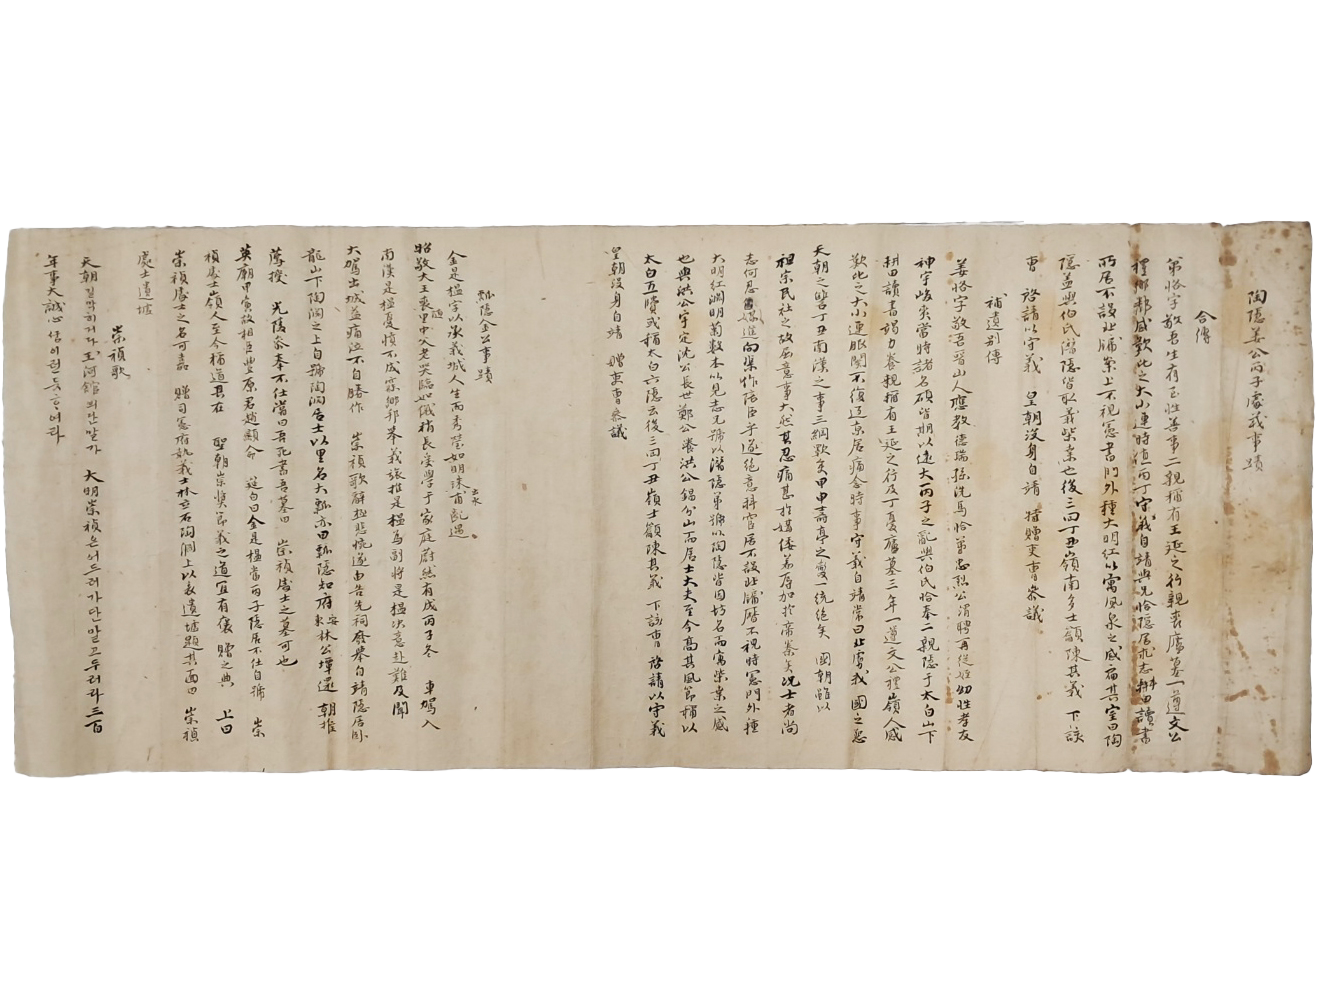 陶隱姜公丙子處義事蹟
合傳
第恪字敬吾生有至性善事二親稱有王延之行親喪廬墓一遵文公
禮鄉鄰咸歎比之大小連時値丙丁守義自靖與兄恰隱居求志耕田讀書
所居不設北牖案上不視憲書門外種大明紅以寓風泉之感扁其室曰陶
隱益與伯氏潛隱皆取義柴桑也後三回丁丑嶺南多士籲陳其義 下該
曹 啓請以守義 皇朝沒身自靖 特贈吏曹參議
補遺別傳
姜恪字敬吾晉山人應敎德瑞孫洗馬恰弟忠烈公渭聘再從姪幼性孝友
神宇峻爽當時諸名碩皆期以遠大丙子之亂與伯氏恰奉二親隱于太白山下
耕田讀書竭力養親稱有王延之行及丁憂廬墓三年一遵文公禮嶺人咸
歎比之大小連服闋不復還京居痛念時事守義自靖常曰北虜我 國之怨
天朝之讐丁丑南漢之事三綱斁矣甲申壽亭之變一統絶矣 國朝雖以
祖宗民社之故屈意事大然其忍痛甚於媾倭羞辱加於帝秦矣況士者尚
志何忍媚進向渠作陪臣乎遂絶意科宦居不設北牖曆不視時憲門外種
大明紅淵明菊數本以見志兄號以潛隱弟號以陶隱皆因坊名而寓柴桑之感
也與洪公宇定沈公長世鄭公瀁洪公錫分山而居士大夫至今高其風節稱以
太白五賢或稱太白六隱云後三回丁丑嶺士籲陳其義 下該曹 啓請以守義
皇朝沒身自靖 贈吏曹參議
瓢隱金公事蹟
金是榲字以承義城人生而秀瑩如明珠出水甫齔遇
昭敬大王喪隨里中父老哭臨如儀稍長受學于家庭蔚然有成丙子冬 車駕入
南漢是榲憂憤不成寐鄕邦奉義旅推是榲爲副將是榲決意赴難及聞
大駕出城益痛泣不自勝作 崇禎歌辭極悲慨遂由告先祠廢擧自靖隱居臥
龍山下陶淵之上自號陶淵居士以里名大瓢亦曰瓢隱知府安東林公墰還 朝推
薦授 光陵參奉不仕嘗曰吾死書吾墓曰 崇禎處士之墓可也
英廟甲寅故相臣豐原君趙顯命 筵白曰金是榲當丙子隱居不仕自號 崇
禎處士嶺人至今稱道其在 聖朝崇奬節義之道宜有褒贈之典 上曰
崇禎處士之名可嘉 贈司憲府執義士林立石陶淵上以表遺墟題其面曰 崇禎
處士遺墟
崇禎歌
天朝길막히거다 玉河館의단말가 大明崇禎은어드러가단말고두러라三百
年事大誠心쑴이런듯ᄒᆞ여라